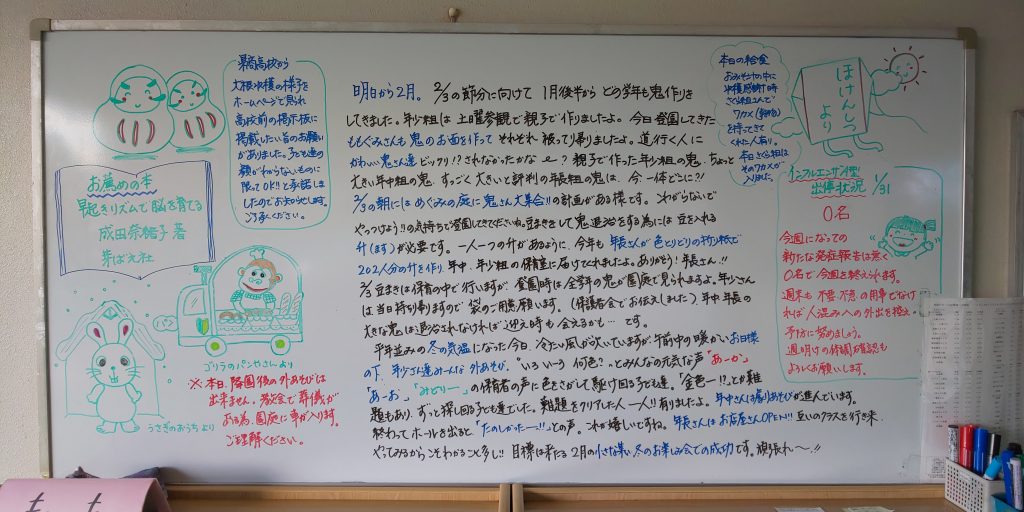 高校から
大根収穫の様子を
ホームページで見られ
高校前の掲示板に
掲載したい旨のお願い
がありました。子ども達の
顔がわからないものに
限ってOK!!と承諾しま
したのでお知らせします。
ご了承ください。
お薦めの本
早起きリズムで脳を育てる
成田奈緒子著
芽ばえ社
パン
ゴリラのパンやさんより
※本日、降園後の外あそびは
出来ません。教会で葬儀が
ある為、園庭に車が入ります。
ご理解ください。
うさぎのおうちより
明日から2月。2/3の節分に向けて1月後半からどの学年も鬼作りを
してきました。年少組は土曜参観で親子で作りましたよ。今日登園してきた
ももぐみさんも鬼のお面を作ってそれぞれ被って帰りましたよ。道行く人に
かわいい鬼さん達ビックリ!?されなかったかな〜?親子で作った年少組の鬼、ちょっと
大きい年中組の鬼、すっごく大きいと評判の年長組の鬼は、今、一体どこに?!
2/3の朝にはめぐみの庭に鬼さん大集会!!の計画がある様です。こわがらないで
やっつけよう!!の気持ちで登園してきてくださいね。豆まきをして鬼退治をする為には豆を入れる
升(ます)が必要です。一人一つの升があるように、今年も年長さんが色とりどりの折り紙で
202人分の升を作り、年中、年少組の保育室に届けてくれましたよ。ありがとう!年長さん!!
2/3豆まきは保育の中で行いますが、登園時は全学年の鬼が園庭で見られますよ。年少さん
は当日持ち帰りますので袋のご用意願います。(保護者会でお伝えしました)年中年長の
大きな鬼は退治されなければお迎え時も会えるかも…です。
平年並みの冬の気温になった今日、冷たい風が吹いていますが午前中の暖かいお日様
の下、年少さん達みーんな外あそび。"いろいろ何色?"ってみんなの元気な声"あーか"
"あーお" "みどりー"の保育者の声に色をさがして駆け回る子ども達。"金色ー!?"とか難
題もあり、ずっと探し回る子も達でした。難題をクリアした人一人!!有りましたよ。年中さんは劇あそびが進んでいます。
終わってホールを出ると、「たのしかったー!!」との声。これが嬉しいですね。年長さんはお店屋さんOPEN!!互いのクラスを行き来、
やってみるからこそわかること多し!!目標は来たる2月の小さな集い、冬のお楽しみ会での成功です。頑張れ〜!!
本日の給食
おみそ汁の中に
収穫感謝の時
さくら組さんで
ワカメ
を持ってきて
くれた人有り。
本日さくら組は
そのワカメが
入りました。
ほけんしつ
より
インフルエンザA型
出停状況 1/31
0名
今週になっての
新たな発症報告は無く
0名で今週を終えられます。
週末も不要・不急の用事でなけ
れば人混みへの外出を控え、
予防に努めましょう。
週明けの体調の確認も
よろしくお願いします。